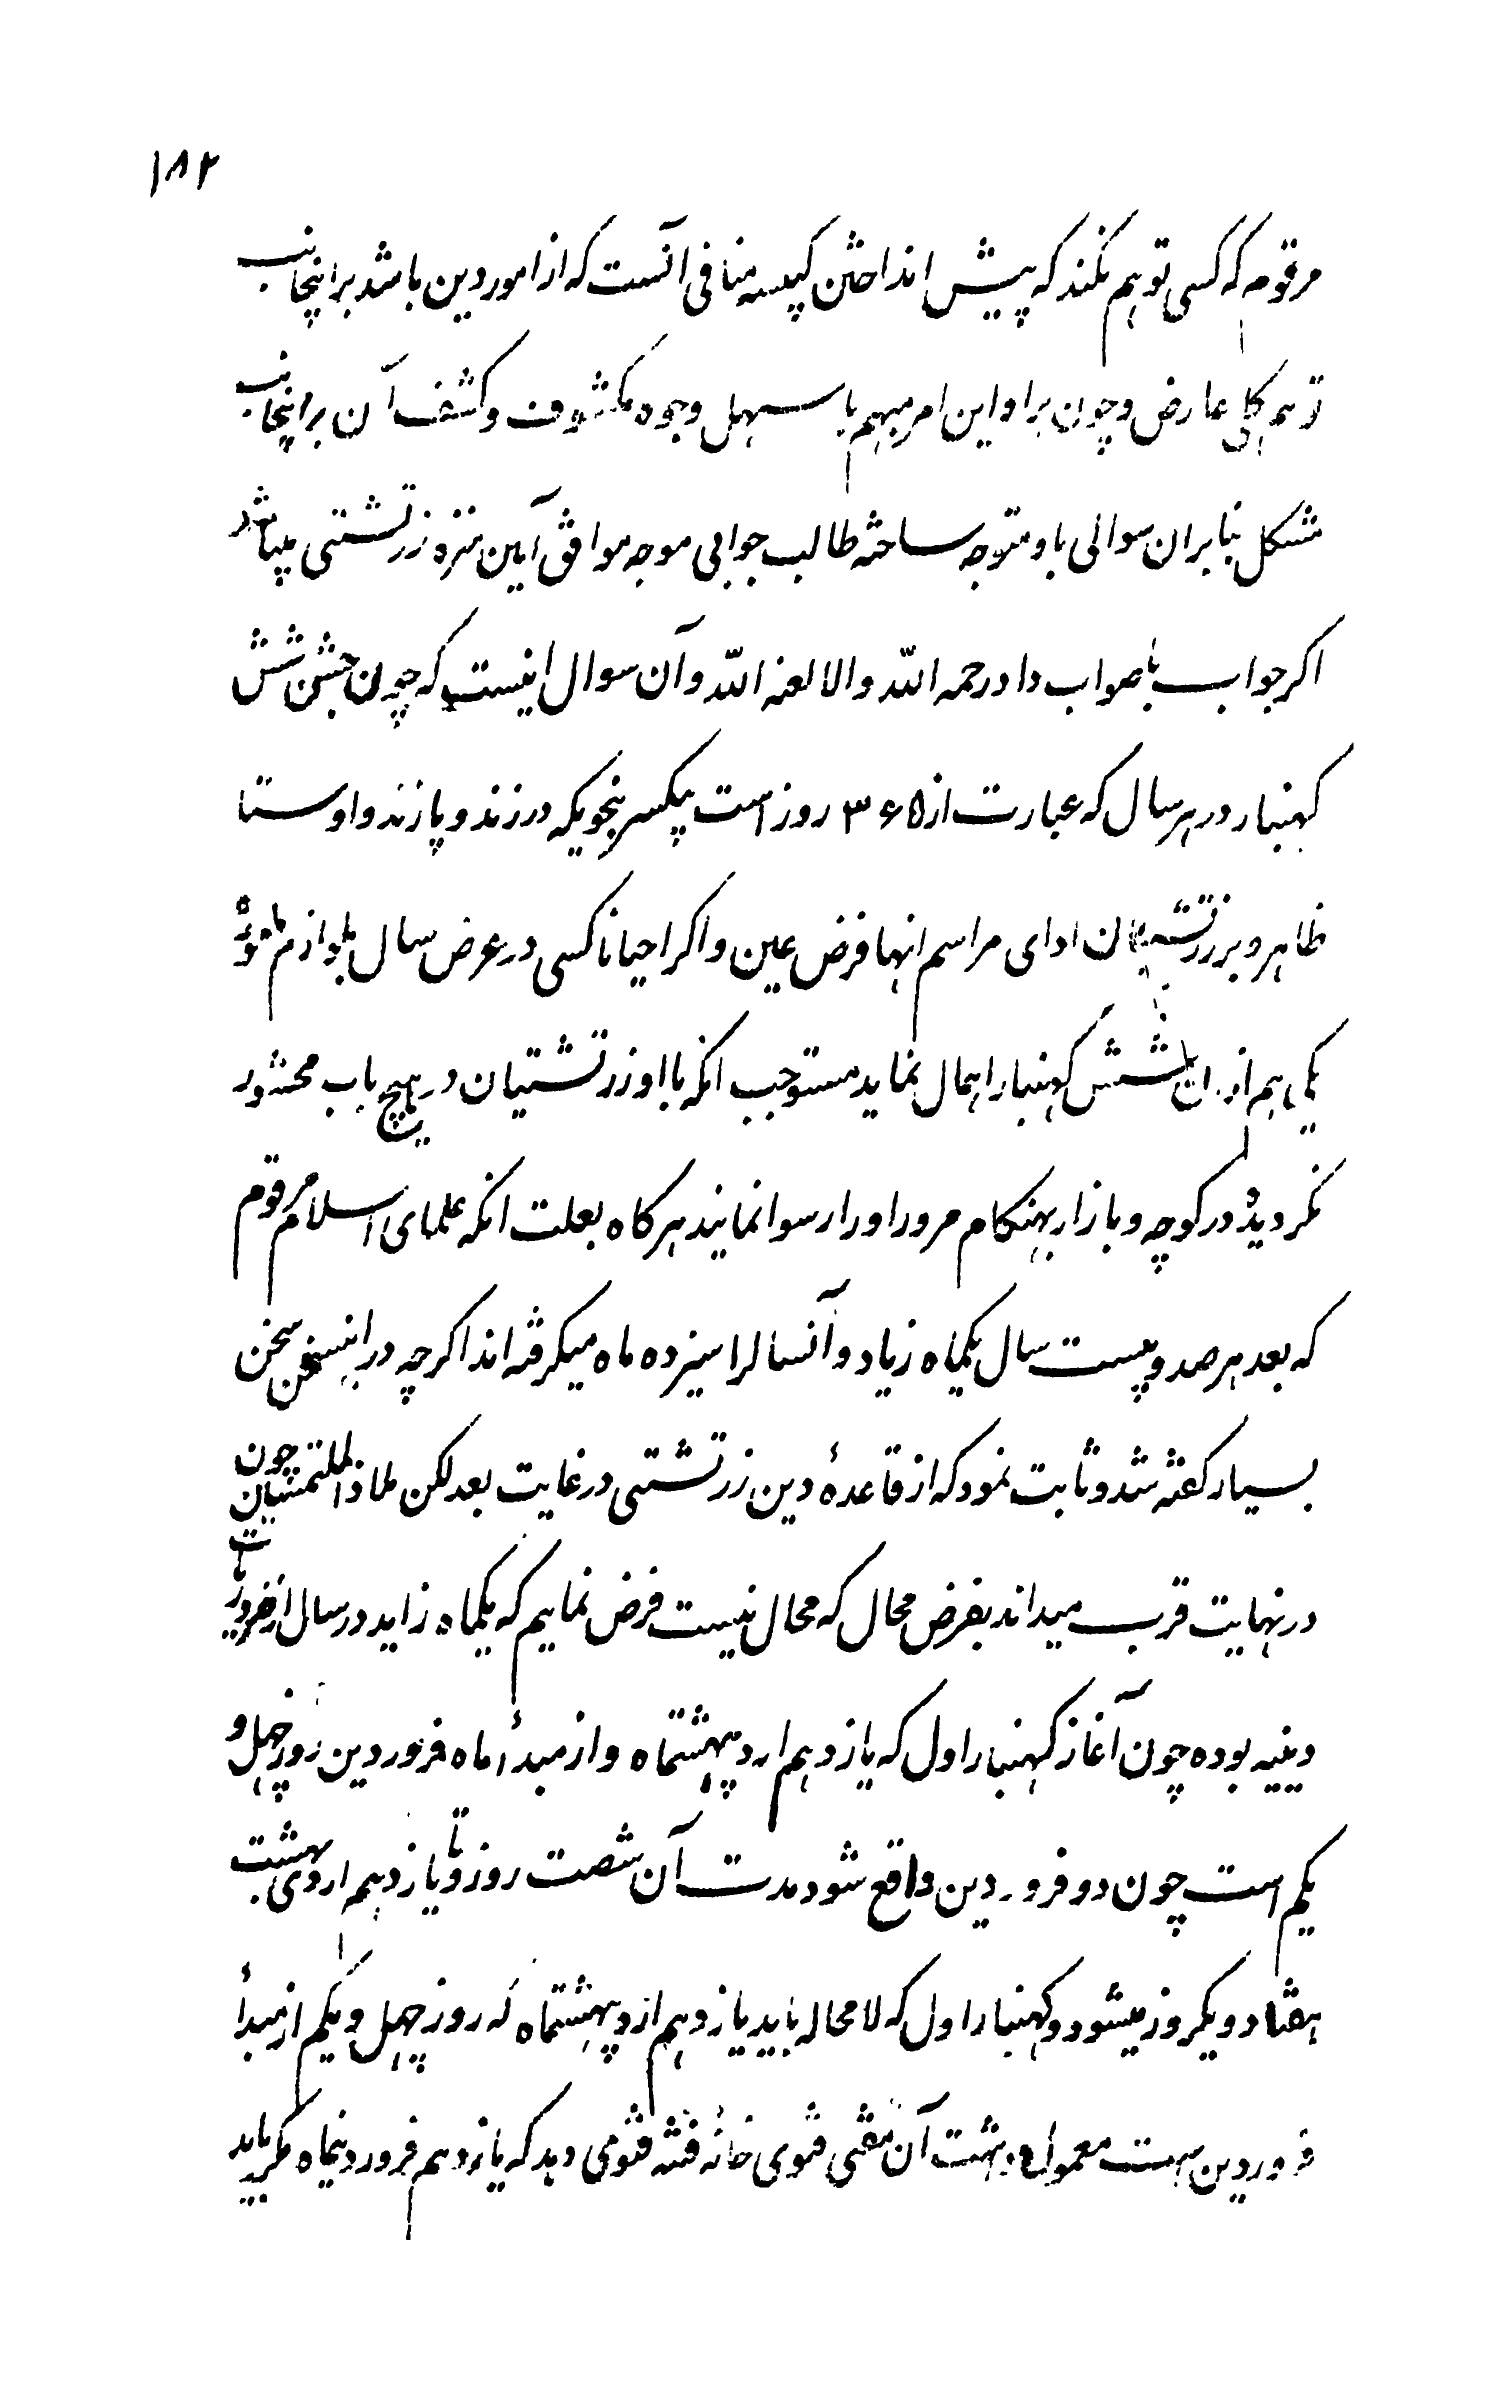 ۱۸۲
مرقومه که کسی توهم نکند که پیش انداختن کبیسه منافی آنست که از امور دین باشد بر اینجانب
توهم کلی عارض و چون بر او این امر مبهم با سهل وجوه مکشوف و کشف آن بر اینجانب
مشکل بنابران سوالی باو متوجه ساخته طالب جوابی موجه موافق آیین منزه زرتشتی میباشد
اکر جواب با صواب داد رحمه الله و الا لعنه الله و آن سوال اینست که چون جشن شش
کهنبار در هر سال که عبارت از ۳۶۵ روز است پیکسر بنحویکه در زند و پازند و اوستا
ظاهر و بر زرتشتیان ادای مراسم انها فرض عین و اکر احیانا کسی در عرض سال بلوازم
یکی هم از ان شش کهنبار اهمال نماید مستوجب انکه با او زرتشتیان در هیچ باب محشور
نکردیده در کوچه و بازار بهنکام مرور او را رسوا نمایند هرکاه بعلت انکه علمای اسلام مرقوم
که بعد هر صد و بیست سال یکماه زیاد و آنسالرا سیزده ماه میکرفته اند اکرچه در اینسخن سخن
بسیار کفته شد و ثابت نمود که از قاعدهٔ دین زرتشتی در غایت بعد لکن ملا چون
در نهایت قرب میداند بفرض محال که محال نیست فرض نماییم که یکماه زاید در سال از ضروریات
دینیه بوده چون آغاز کهنبار اول که یازدهم اردیبهشتماه و از مبدأ ماه فروردین روز چهل و
یکم است چون دو فروردین واقع شود مدت آن شصت روز و تا یازدهم اردیبهشت
هفتاد و یکروز میشود و کهنبار اول که لامحاله باید یازدهم اردیبهشتماه که روز چهل و یکم از مبدأ
فروردین است معمول آن مفتی فتوی خانه فتنه فتوی میدهد که یازدهم فروردینماه باید